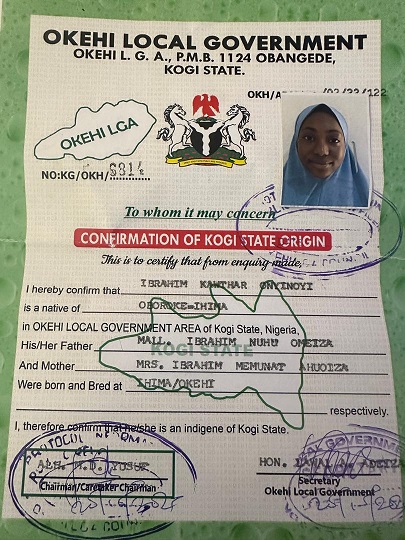 OKEHI LOCAL GOVERNMENT
OKEHI L. G. A., P.M.B. 1124 OBANGEDE,
KOGI STATE.
OKEHI LGA
NO:KG/OKH/ S814
To whom it may concern
CONFIRMATION OF KOGI STATE ORIGIN
This is to certify that from enquiry made,
I hereby confirm that IBRAHIM KAWTHAR ONYINOYI
is a native of OBOROKE-IHIMA
in OKEHI LOCAL GOVERNMENT AREA of Kogi State, Nigeria,
His/Her Father MALL. IBRAHIM NUHU OMEIZA
KOGI STATE
And Mother MRS. IBRAHIM MEMUNAT AHUOIZA
Were born and Bred at IHIMA/OKEHI
respectively.
I, therefore confirm that he/she is an indigene of Kogi State.
HON. LAWAL
Chairman/Caretaker Chairman
Secretary
Okehi Local Government